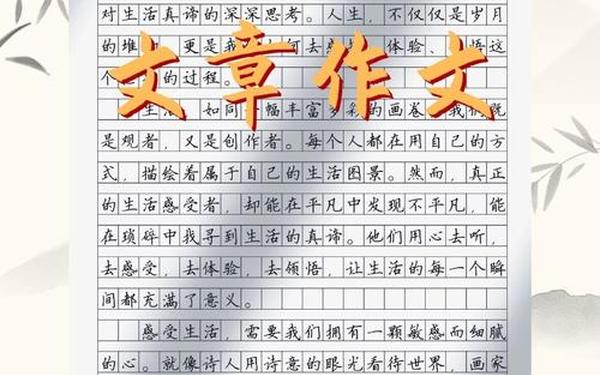 对生活真谛的深深思考。人生,不仅仅是岁月
的堆 更是我 何去感 体验、 悟这
文章作文
个 的过程。
生活,如同 幅丰富多彩的画卷,我们既
是观者,又是创作者。每个人都在用自己的方
式,描绘着属于自己的生活图景。然而,真正
的生活感受者,却能在平凡中发现不平凡,能
在琐碎中我寻到生活的真谛。他们用心去听,
去感受,去体验,去领悟,让生活的每一个瞬
间都充满了意义。
感受生活,需要我们拥有一颗敏感而细腻
的心。就像诗人用诗意的眼光看待世界,画家